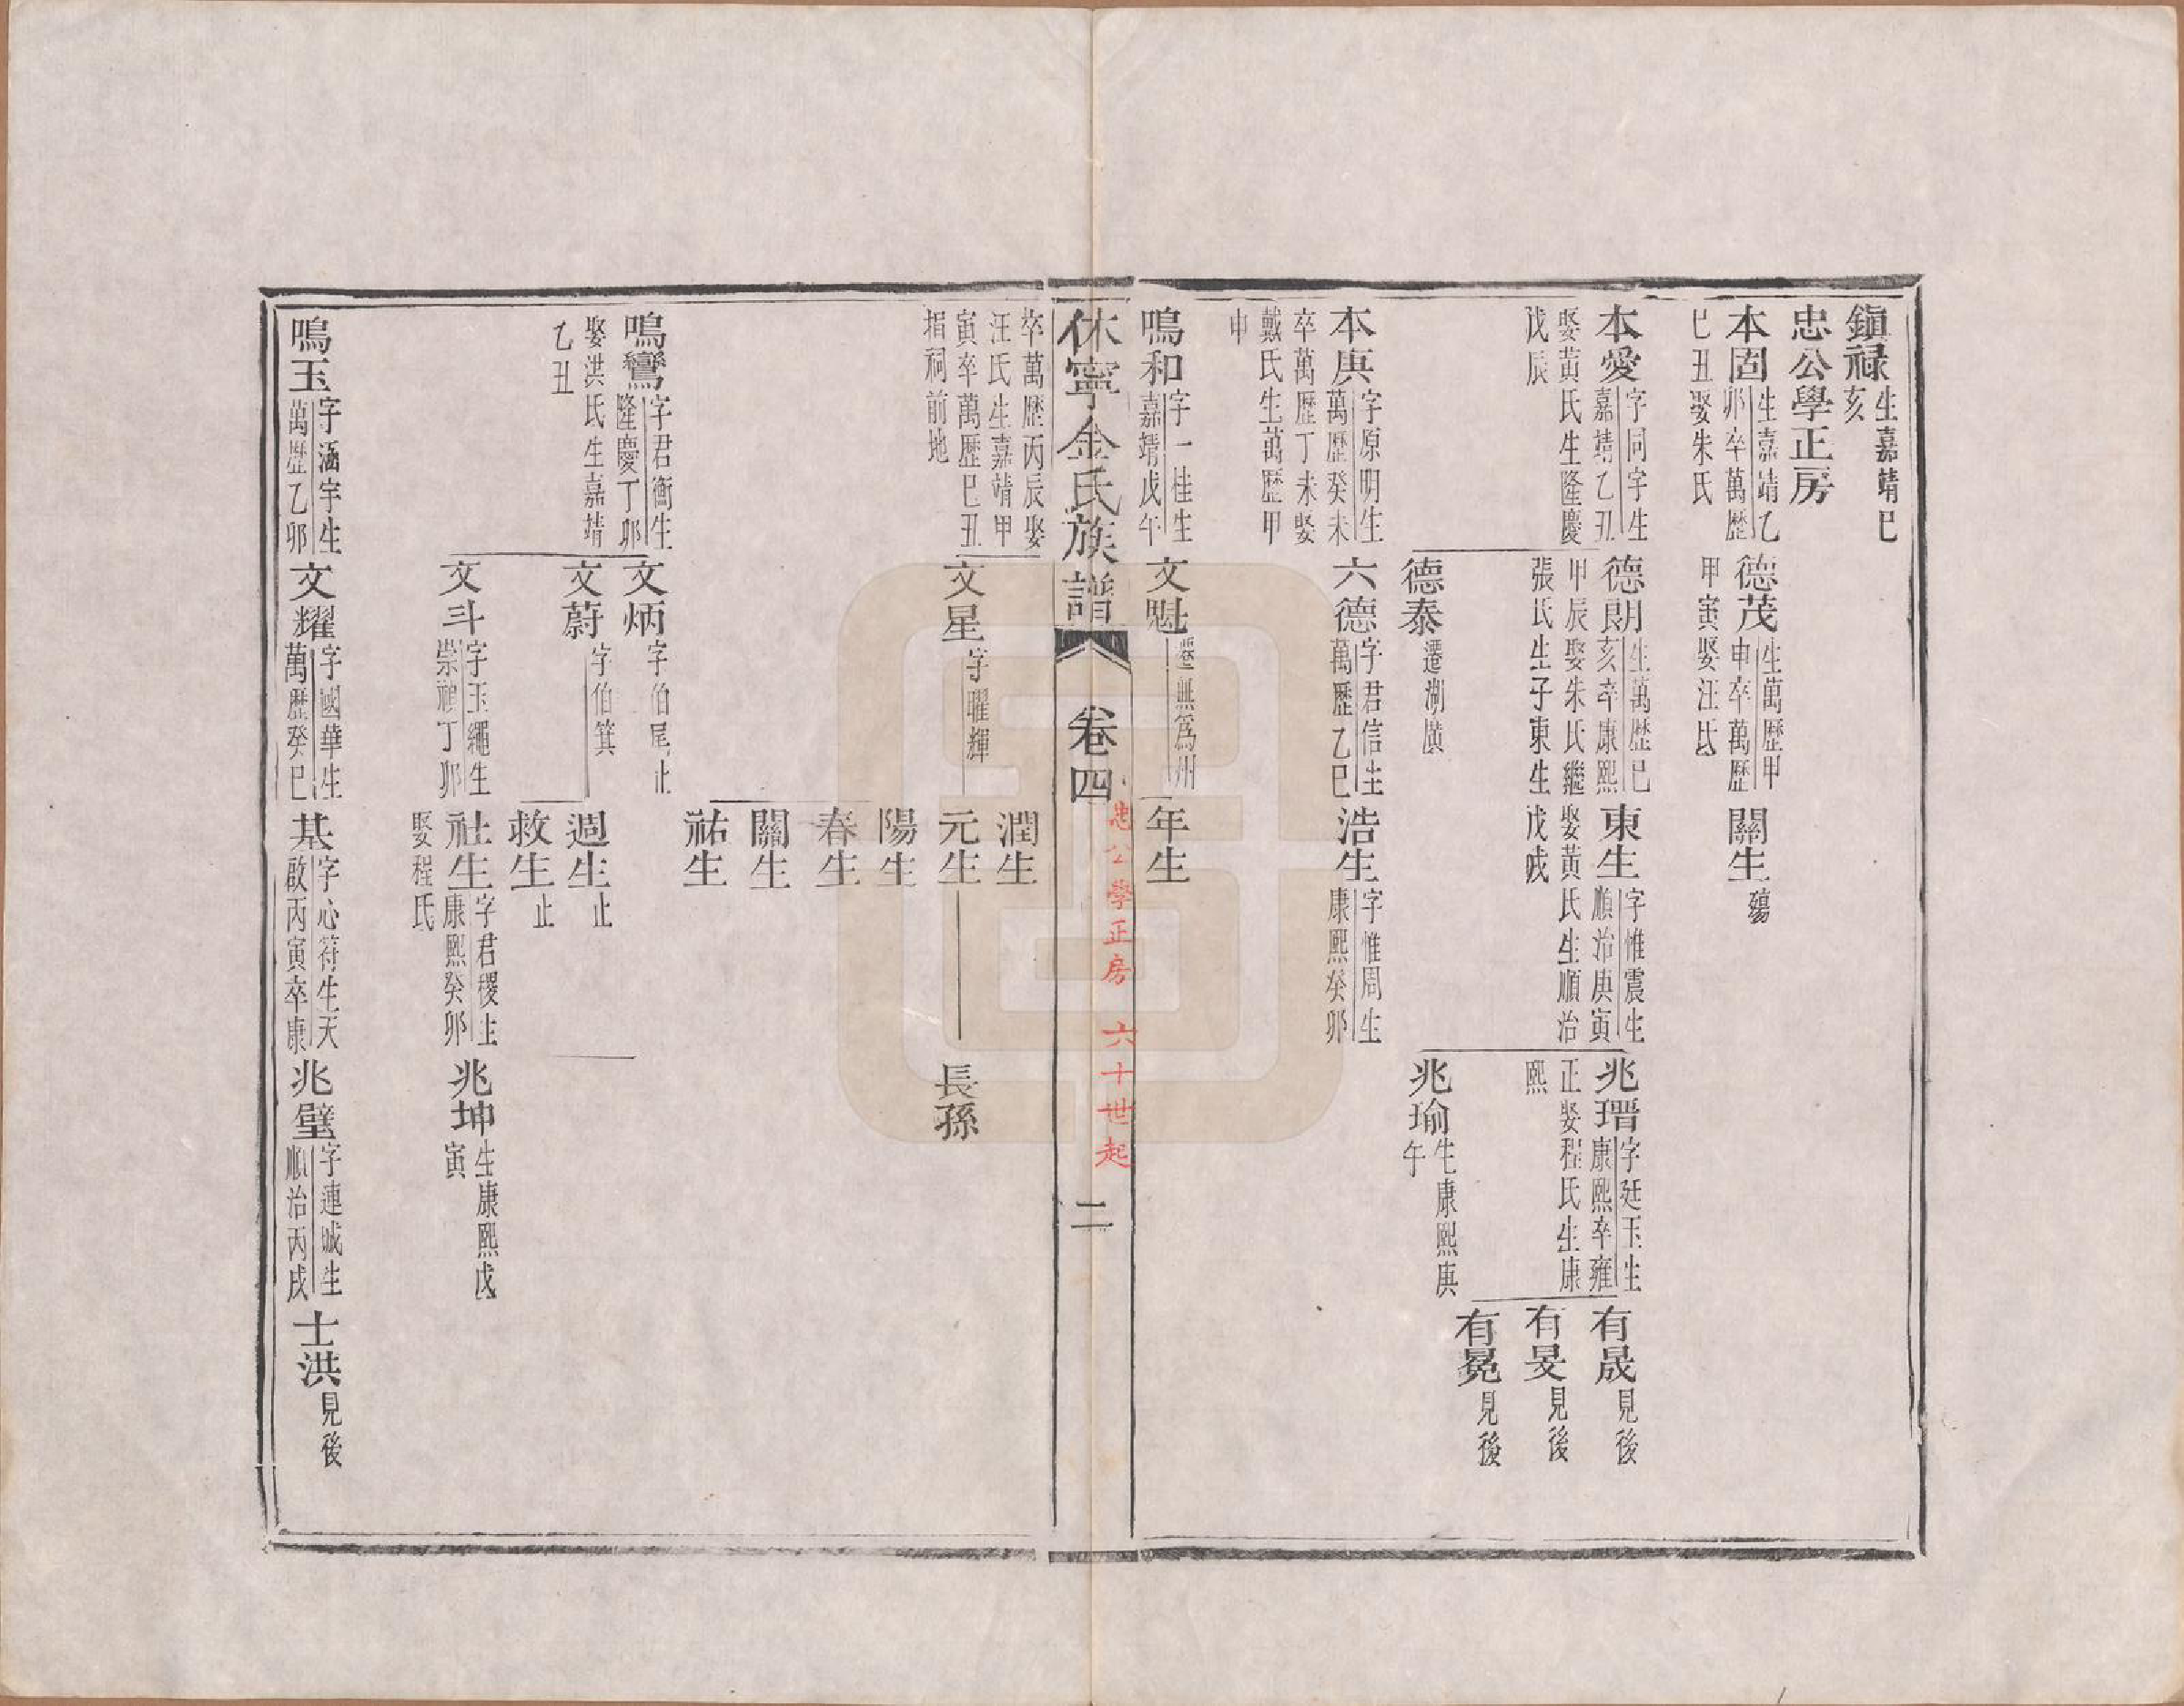 鎮祿 生嘉靖己亥
忠公學正房
本固 生嘉靖乙卯卒萬歷己丑娶朱氏
德茂 生萬歷甲申卒萬歷甲寅娶汪氏
關生 殤
本愛 字同字生嘉靖乙丑娶黃氏生隆慶戊辰
德朗 生萬歷己亥卒康熙甲辰娶朱氏繼張氏生子東生
東生 字惟震生順治庚寅娶黃氏生順治戊戌
兆瑨 字廷玉生康熙卒雍正娶程氏生康熙
有晟 見後
有旻 見後
有冕 見後
兆瑜 生康熙庚午
德泰 遷湖廣
本庚 字原明生萬歷癸未卒萬歷丁未娶戴氏生萬歷甲申
六德 字君信生萬歷乙巳
浩生 字惟周生康熙癸卯
鳴和 字一桂生嘉靖戊午
文魁 遷無為州
年生
休寧金氏族譜 卷四 忠公學正房 六十世起 二
卒萬歷丙辰娶汪氏生嘉靖甲寅卒萬歷己丑捐祠前地
文星 字曜輝
潤生
元生
長孫
陽生
春生
關生
祐生
鳴鸞 字君衡生隆慶丁卯娶洪氏生嘉靖乙丑
文炳 字伯尾止
文蔚 字伯箕
週生 止
救生 止
文斗 字玉繩生崇禎丁卯
社生 字君稷生康熙癸卯娶程氏
兆坤 生康熙戊寅
鳴玉 字涵宇生萬歷乙卯
文耀 字國華生萬歷癸巳
基 字心符生天啟丙寅卒康
兆璧 字連城生順治丙戌
士洪 見後